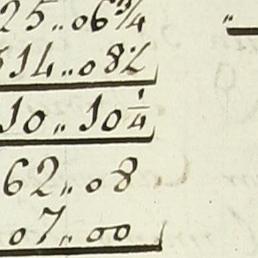 25..06¾
314..08½
10..10¼
62..08
07..00